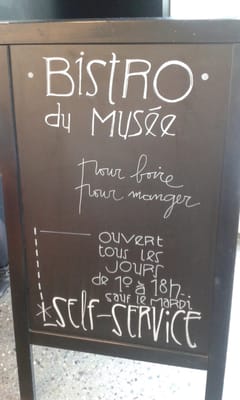 BISTRO
du MUSée
pour boire
pour manger
OUVERT
TOUS LES
JOURS
de 10 à 18h.
sauf le mardi
*SELF-SERVICE